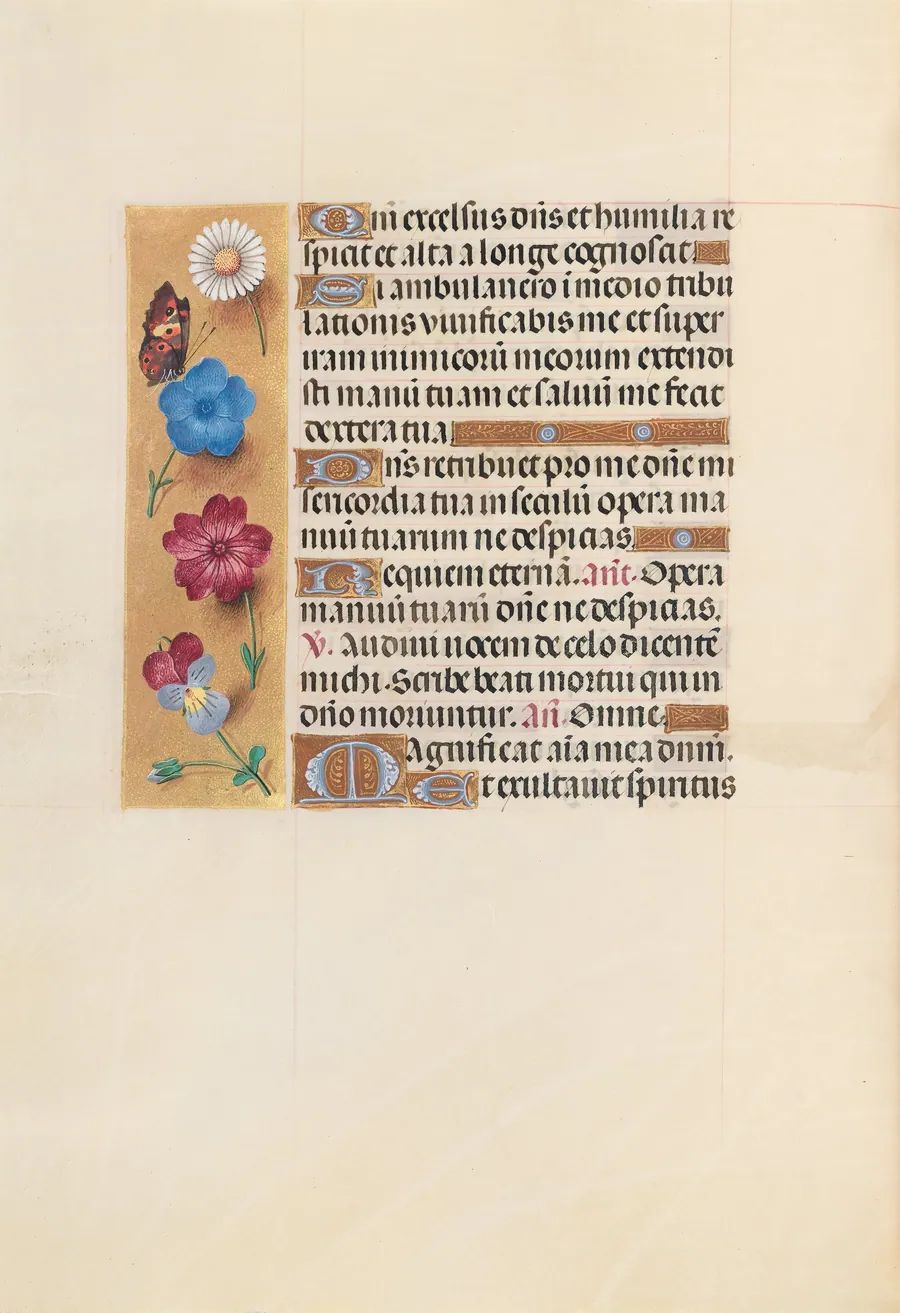 Qm̄ excelsus dn̄s et humilia re
spicit et alta a longe cognoscit
Si ambulauero ī medio tribu
lationis viuificabis me et super
iram inimicorū meorum extendi
sti manū tuam et saluū me fecit
dextera tua
Dn̄s retribuet pro me dn̄e mi
sericordia tua in seculū opera ma
nuū tuarum ne despicias
Requiem eternā. an̄t. Opera
manuū tuarū dn̄e ne despicias.
V. Audiui uocem de celo dicentē
michi. Scribe beati mortui qui in
dn̄o moriuntur. An̄. Omne
Magnificat aīa mea dnm̄.
Et exultauit spiritus